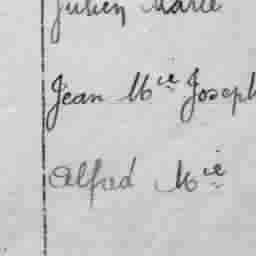 Julien Marie
Jean Mie Joseph
Alfred Mie